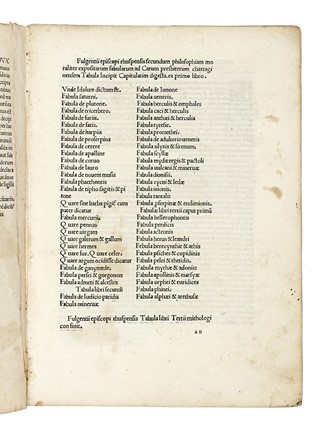 Fulgentii episcopi rhuspensis secundum philosophiam mo
raliter expositarum fabularum ad Catum presbiterum chartagi
nensem Tabula Incipit Capitulatim digesta. ex primo libro.
Vnde Idolum dictum est.
Fabula saturni.
Fabula de plutone.
Fabula de tricerbero.
Fabula de furiis.
Fabula de fatis.
Fabula de harpiis
Fabula de proserpina
Fabula de cerere
Fabula de apolline
Fabula de coruo
Fabula de lauro
Fabula de nouem musis
Fabula phaethontis
Fabula de tipho sagitis & pi
tone
Quare sine barba pigi cum
pater dicatur
Fabula mercurii.
Quare pennas
Quare uirgam
Quare galerum & gallum
Quare hermes
Quare fur. Quare celer.
Quare argum ocidisse dicatur
Fabula de ganymede.
Fabula persei & gorgonon
Fabula admeti & alcestes
Tabula libri secundi
Fabula de iudicio paridis
Fabula minerue
Fabula de Iunone
Fabula ueneris.
Fabula herculis & omphales
Fabula caci & herculis
Fabula anthei & herculis
Fabula tyresie.
Fabula promethei.
Fabula de adulterio ueneris
Fabula ulyxis & sirenum.
Fabula scyllæ
Fabula mydæ regis & pactoli
Fabula uulcani & mineruæ
Fabula dionisii.
Fabula cycni & ledæ
Fabula ixionis.
Fabula tantali
Fabula endimionis.
Tabula libri tertii caput primū
Fabula bellerophontis
Fabula perdicis
Fabula acteonis
Fabula herus & leandri
Fabula berecynthiæ & athis
Fabula psiches & cupidinis
Fabula pelei & thetidis.
Fabula myrrhæ & adonis
Fabula apollinis & marsyæ
Fabula orphei & euridices
Fabula phinei.
Fabula alphei & arethusæ
Fulgentii episcopi rhuspensis Tabula libri Tertii mithologi
con finit.
a ii